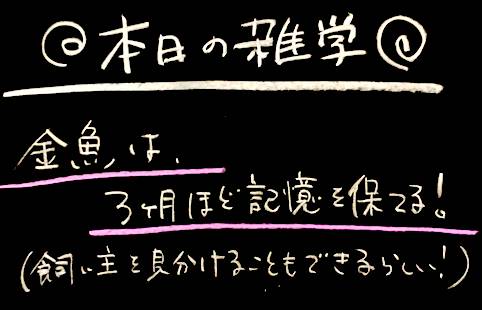 本日の雑学
金魚は、
3ヶ月ほど記憶を保てる!
(飼い主を見分けることもできるらしい!)